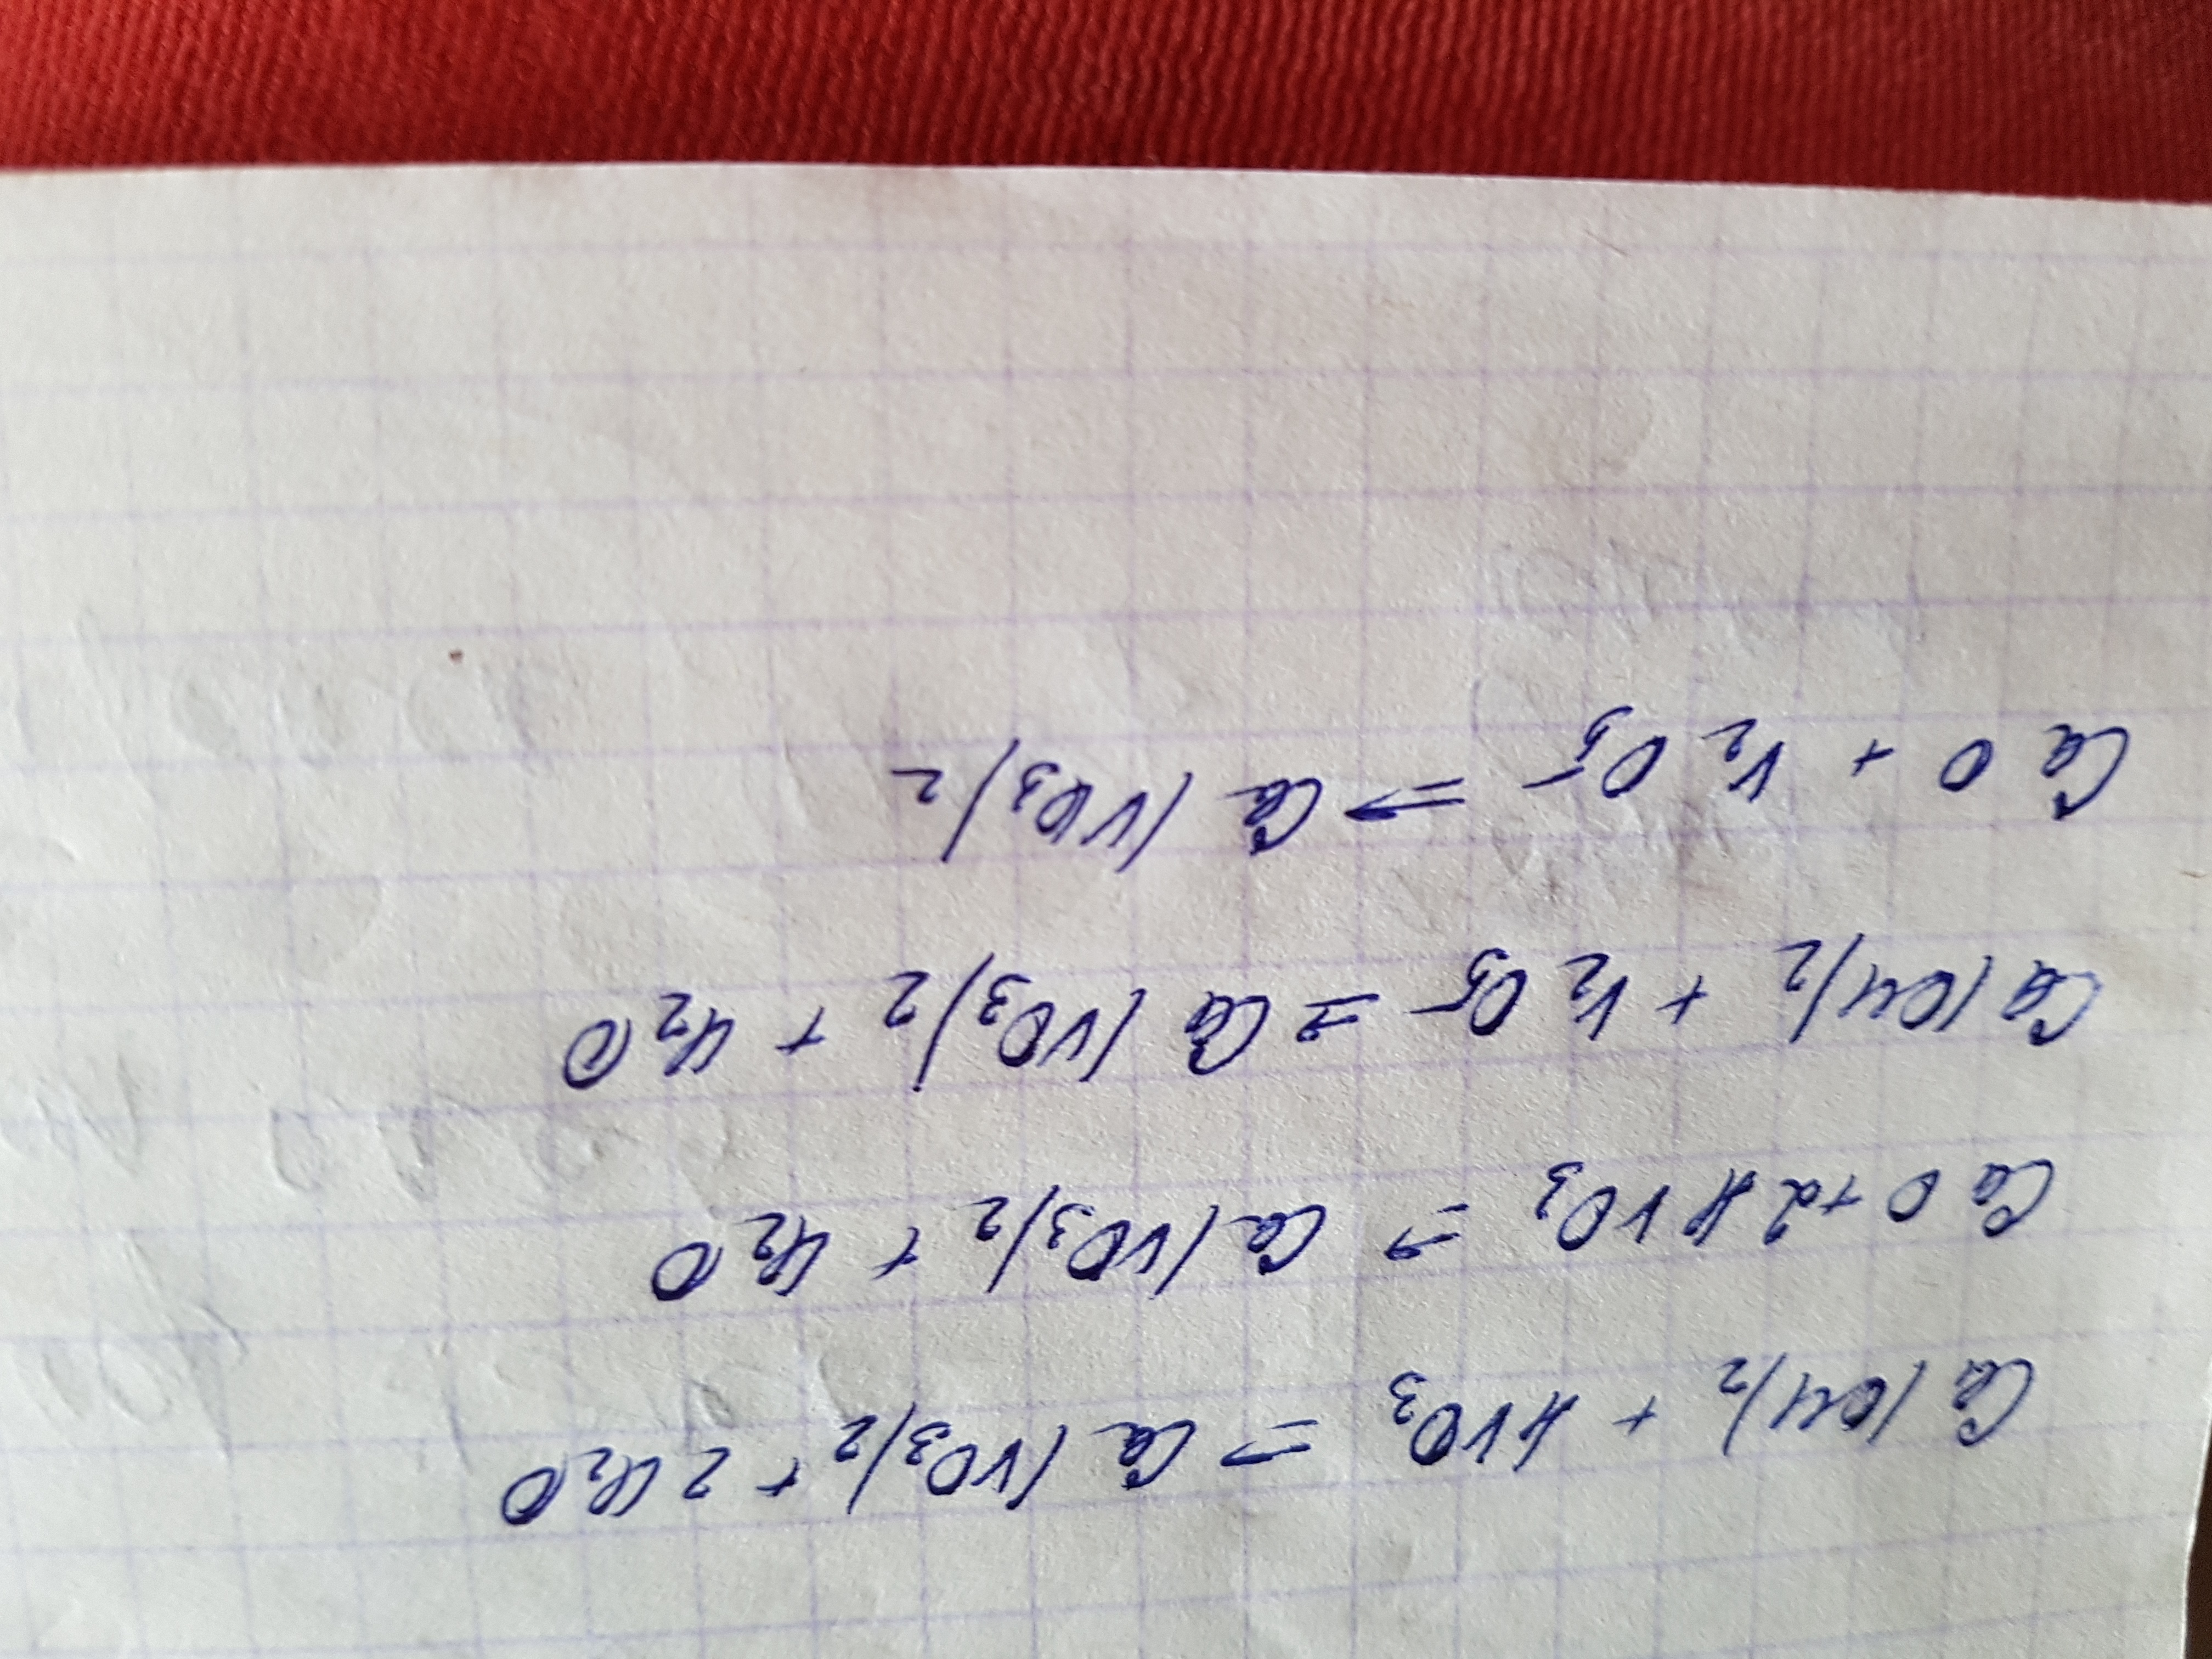 Ca(OH)₂ + HVO₃ ⇒ Ca(VO₃)₂ + 2H₂O
CaO + 2HVO₃ ⇒ Ca(VO₃)₂ + H₂O
Ca(OH)₂ + V₂O₅ ⇒ Ca(VO₃)₂ + H₂O
CaO + V₂O₅ ⇒ Ca(VO₃)₂